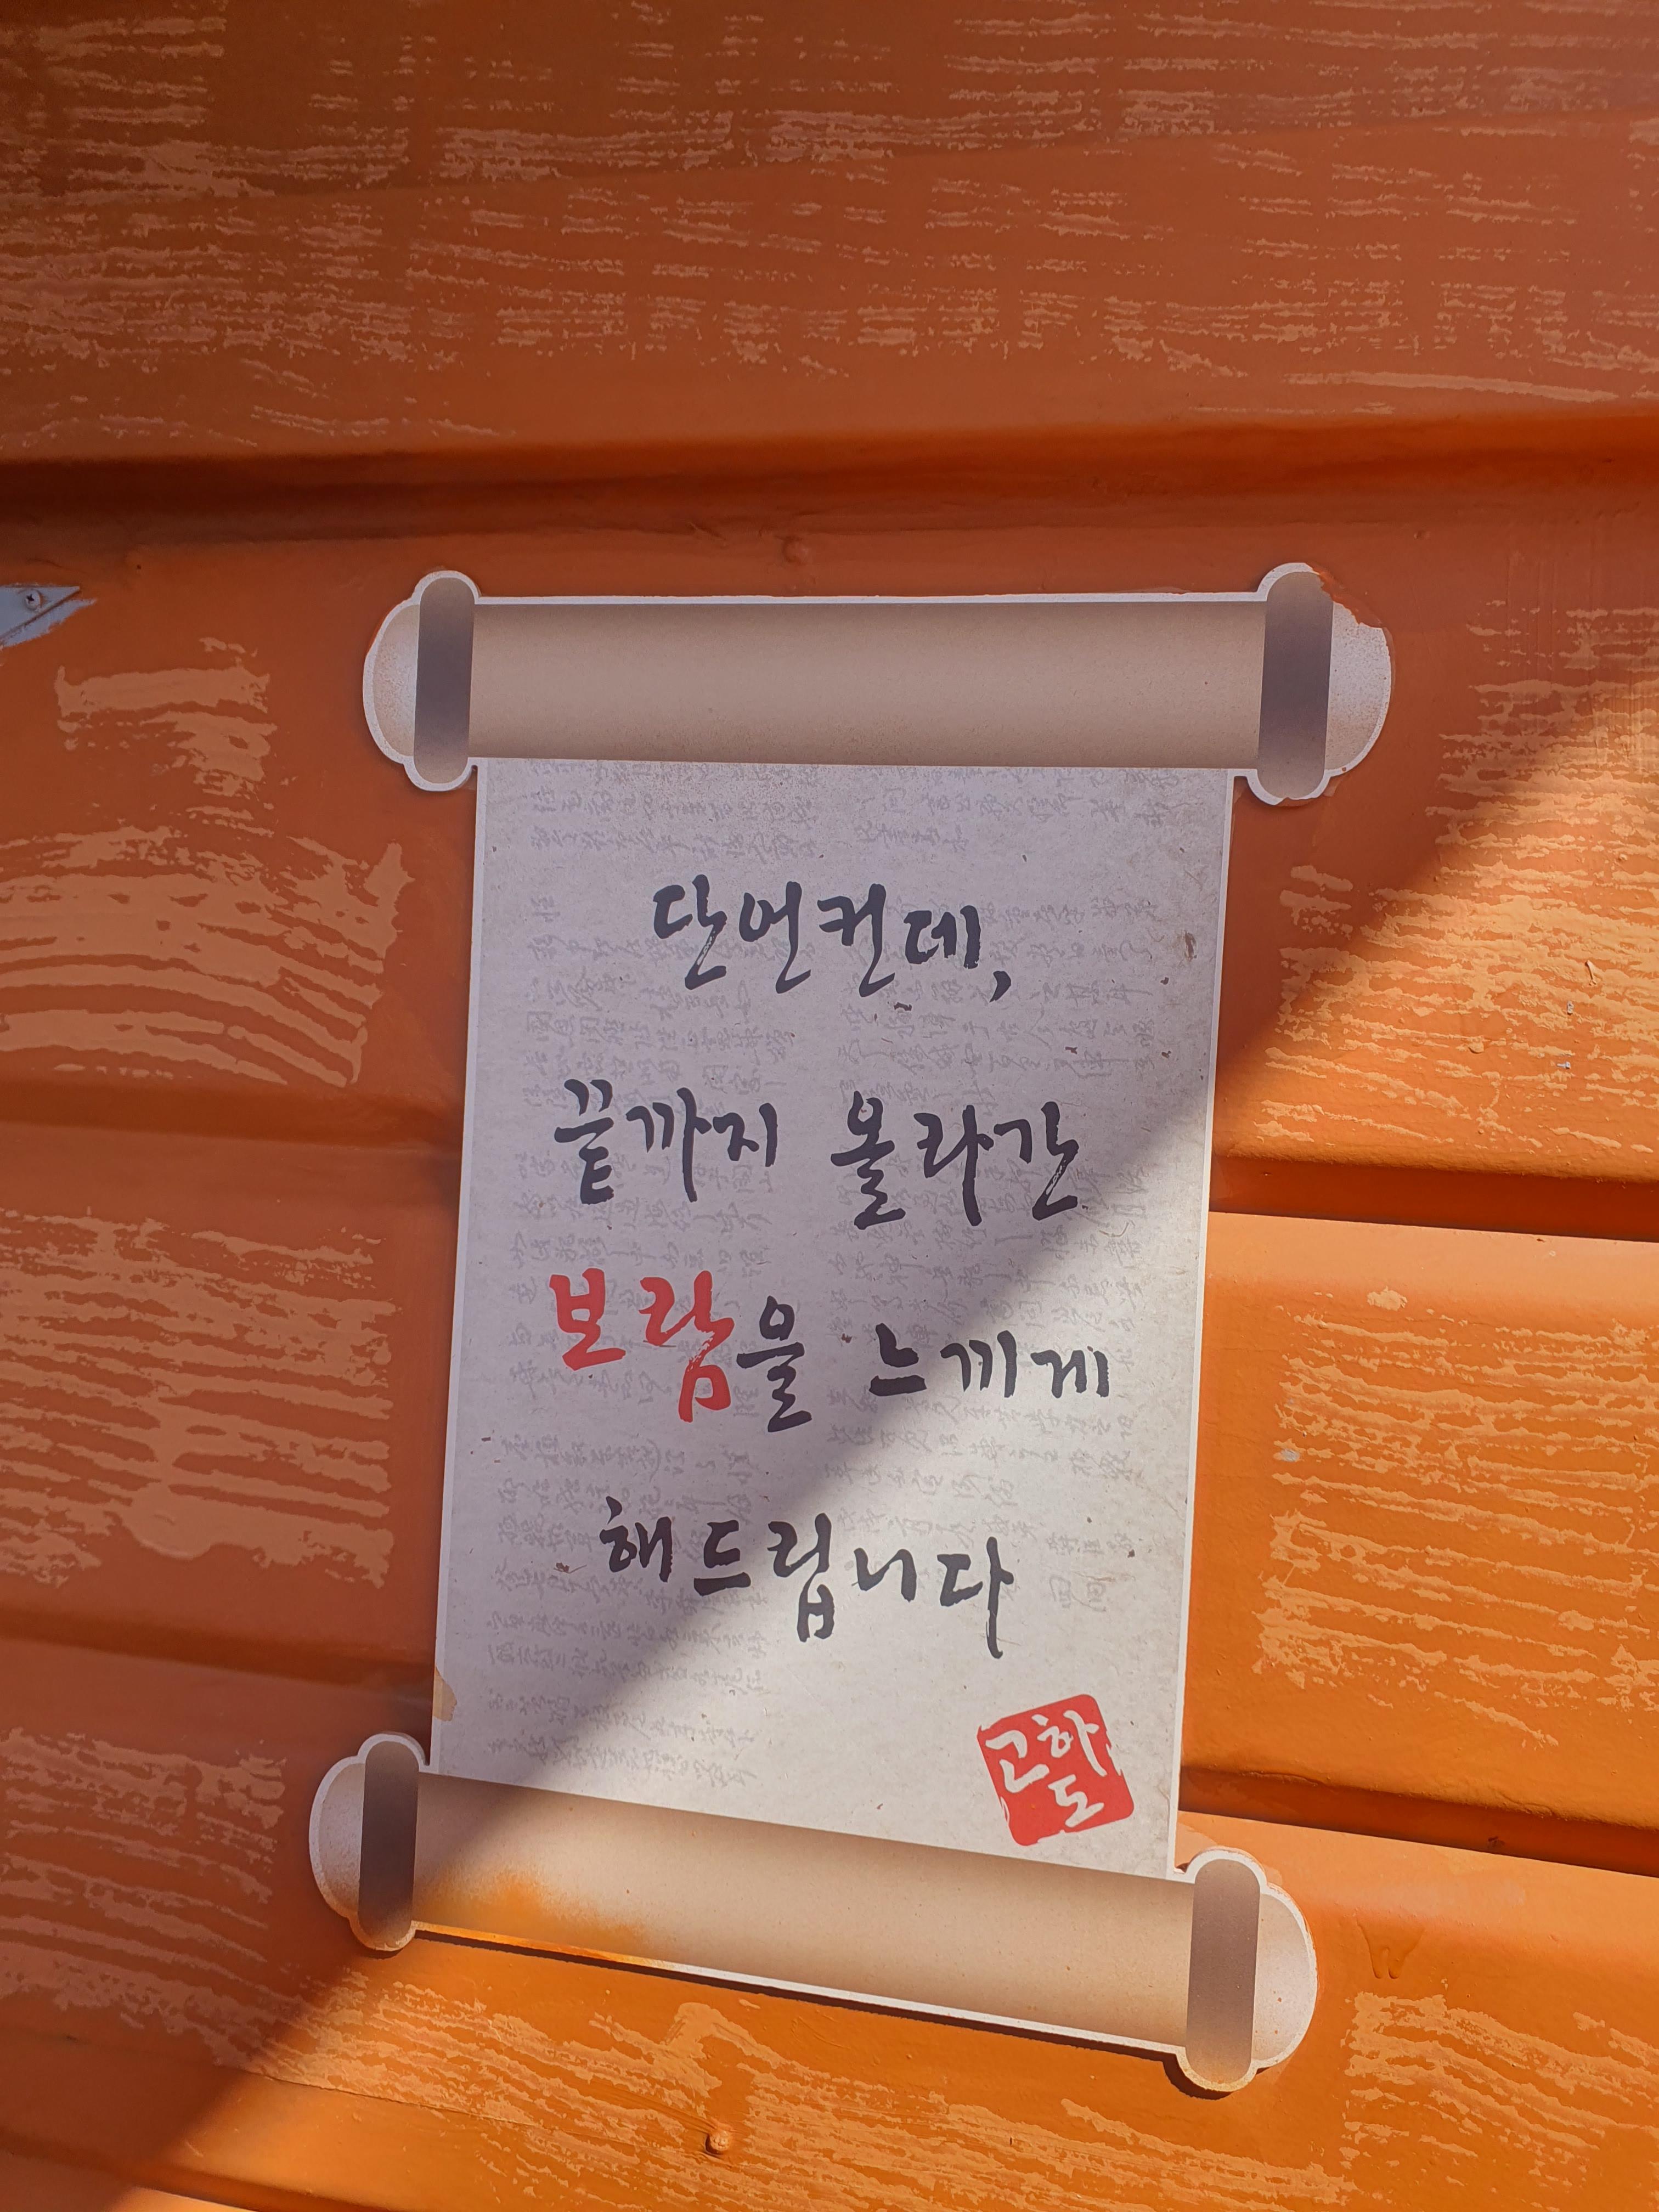 단언컨데,
끝까지 올라간
보람을 느끼게
해드립니다
고하
도